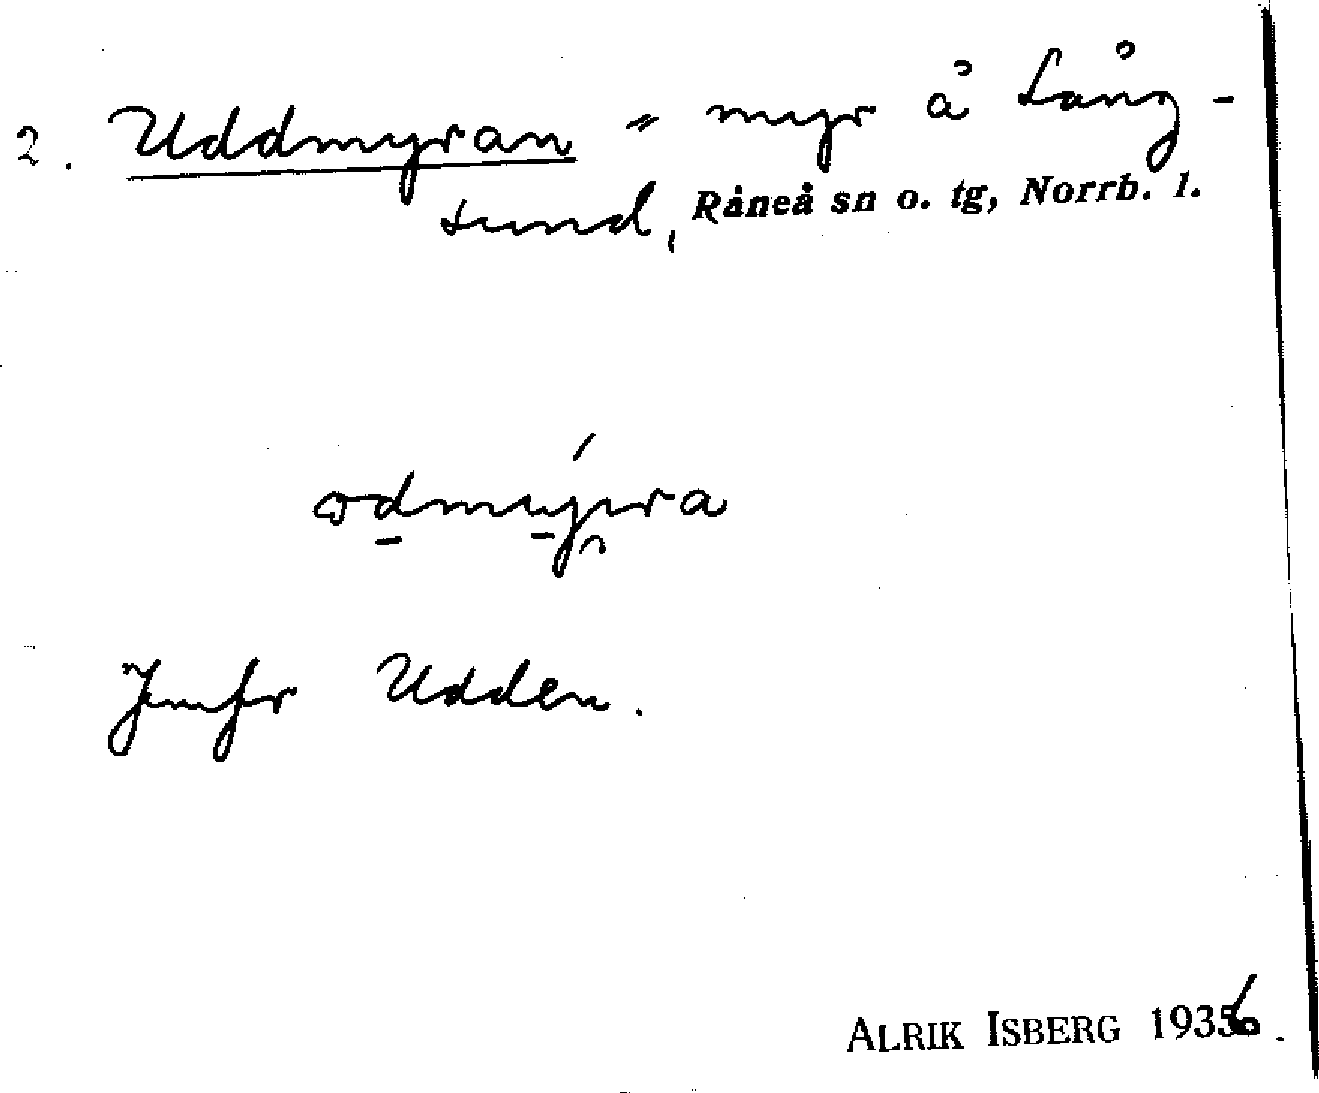 2. Uddmyran = myr å Lång-
sund, Råneå sn o. tg, Norrb. l.
odmuy̭ra
Jmfr Udden.
ALRIK ISBERG 1936.